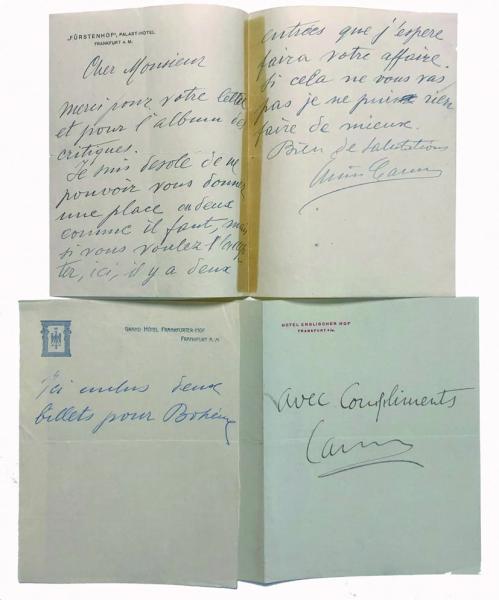 „FÜRSTENHOF", PALAST-HOTEL
FRANKFURT A. M.
Cher Monsieur
merci pour votre lettre
et pour l'album des
critiques.
Je suis desolé de ne
pouvoir vous donner
une place ou deux
comme il faut, mais
si vous voulez l'accep
ter, ici, il y a deux
entrées que j'espere
faira votre affaire.
Si cela ne vous vas
pas je ne puis rien
faire de mieux.
Bien de salutations
GRAND HÔTEL FRANKFURTER-HOF
FRANKFURT A/M
Ici inclus deux
billets pour Bohème
HOTEL ENGLISCHER HOF
FRANKFURT A/M.
avec Compliments
Caruso